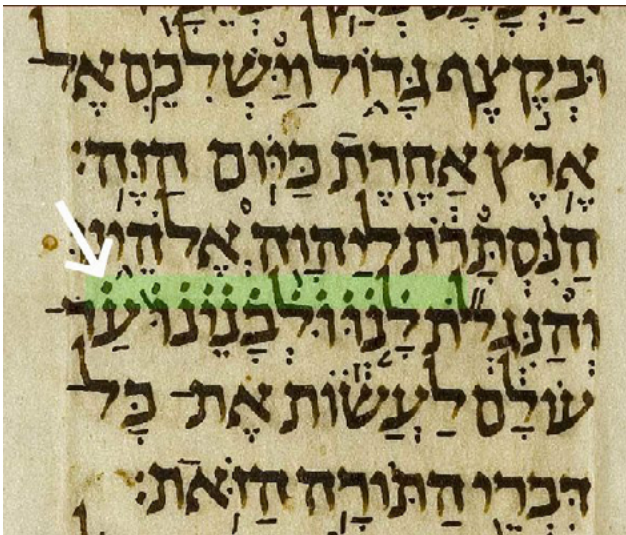 וּבְקֶצֶף גָּדוֹל וַיַּשְׁלִכֵם אֶל
אֶרֶץ אַחֶרֶת כַּיּוֹם הַזֶּה׃
הַנִּסְתָּרֹת לַיהוָה אֱלֹהֵינוּ
וְהַנִּגְלֹת לָׄנׄוּׄ וּׄלְׄבָׄנֵׄיׄנׄוּׄ עַׄד־
עוֹלָם לַעֲשׂוֹת אֶת־ כָּל
דִּבְרֵי הַתּוֹרָה הַזֹּאת׃